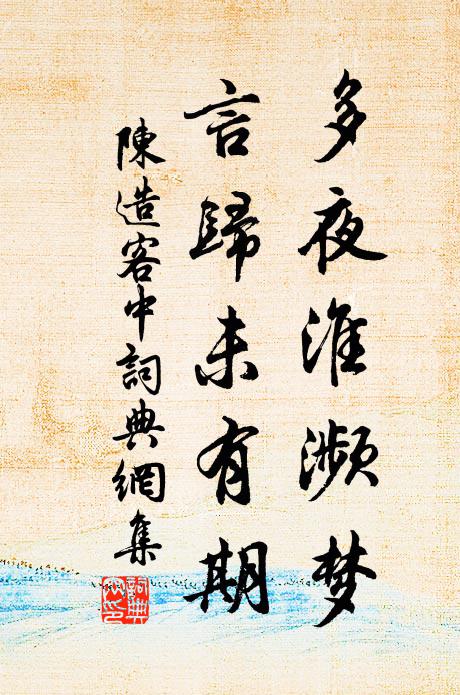 多夜淮濒梦
言歸未有期
陳造客中詞典網集